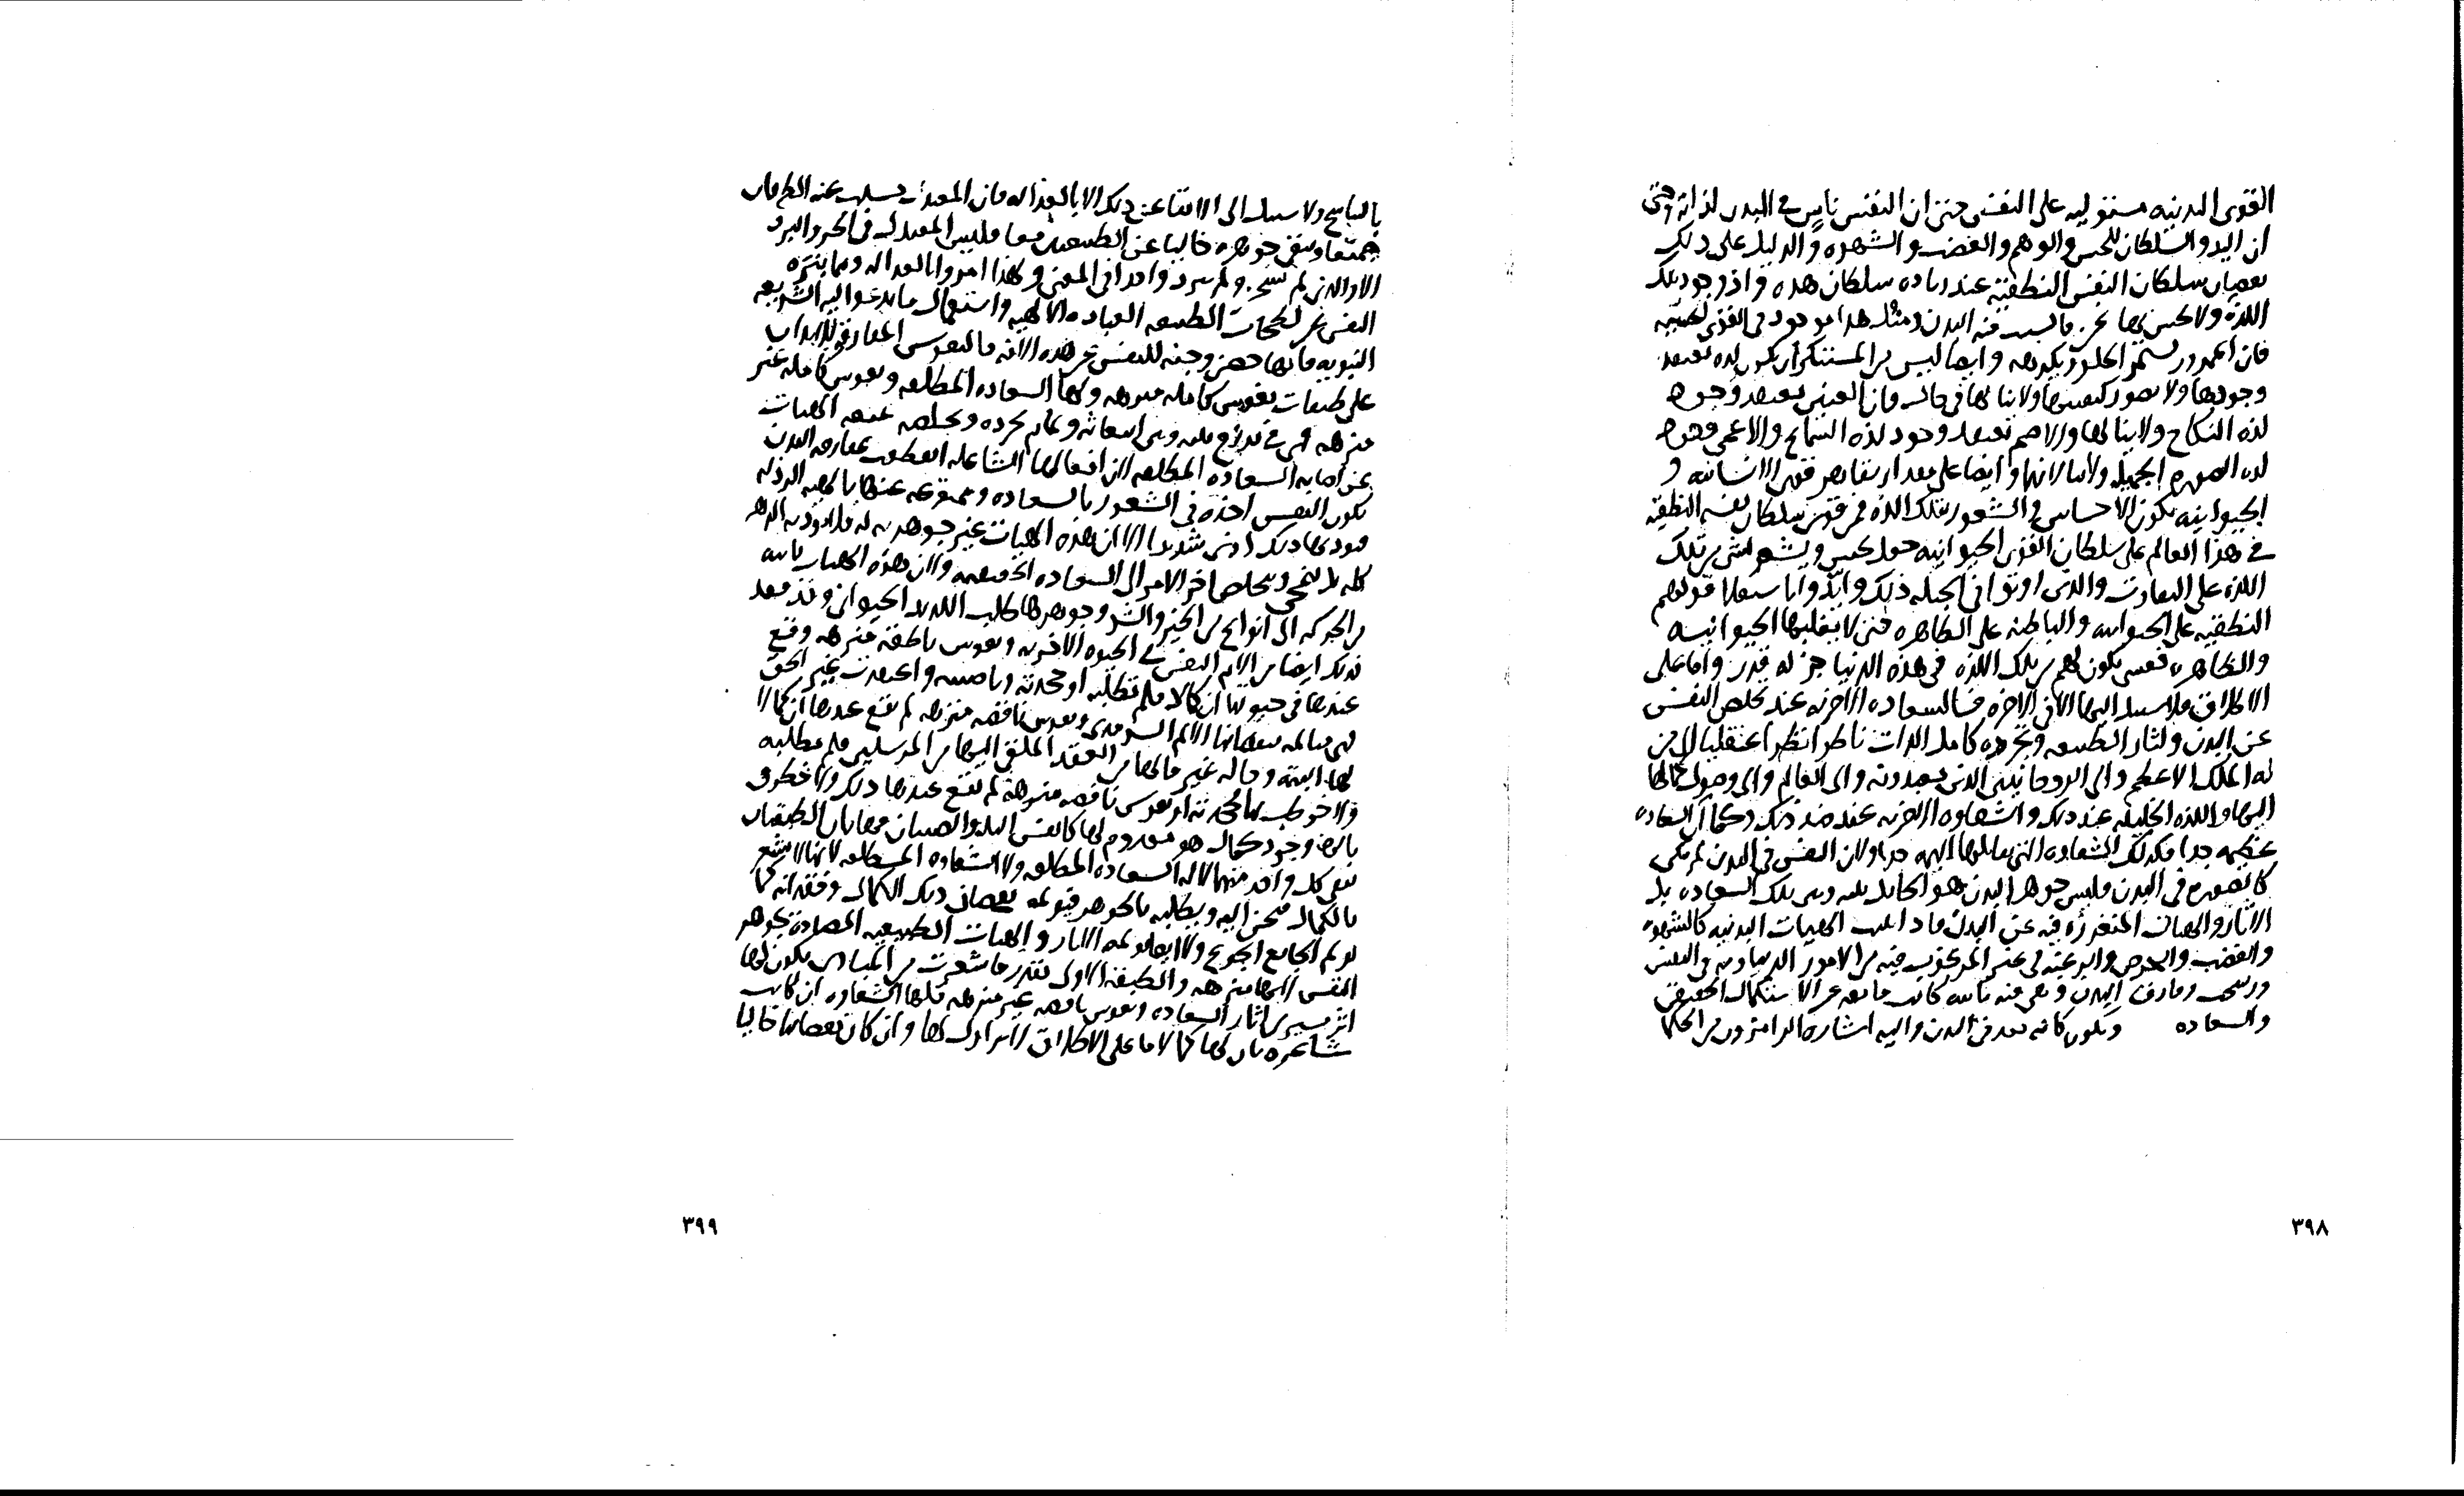 القوى البدنيه مستوليه على النفس حتى ان النفس ناس في البدن لذاته وحتى
ان اليد والسلطان للحس والوهم والغضب والشهوه والدليل على ذلك
نقصان سلطان النفس النطقية عند زياده سلطان هذه واذ وجود تلك
اللذة ولا نحس بها نحن فالسبب فيه البدن ومثل هذا موجود في القوى الحسيه
فان الممرور يستمر الحلو ويكرهه وايضا ليس من المستنكر ان يكون لذه نعتقد
وجودها ولا نصور كيفيتها ولا ننالها في حاله فان العنين يعتقد وجود
لذه النكاح ولا ينالها والاصم يعتقد وجود لذه السماع والاعمى وجود
لذه الصوره الجميله ولا ينالانها وايضا على مقدار تقاهر قوى الانسانيه و
الحيوانيه يكون الاحساس والشعور بتلك اللذه فمن قوى سلطان نفسه النطقيه
في هذا العالم على سلطان القوى الحيوانيه حول يحس ويشعر بشى من تلك
اللذه على التفاوت والذى اوتوا في الجبله ذلك وايدوا باستعلا قوتهم
النطقيه على الحيوانيه والباطنه على الظاهره حتى لا يغلبها الحيوانيه
والظاهره فعسى يكون لهم من تلك اللذه في هذه الدنيا جز له قدر واما على
الاطلاق فلا سبيل اليها الا في الاخره فالسعاده الاخريه عند تخلص النفس
عن البدن واثار الطبيعه وتجرده كامل الذات ناظرا نظرا عقليا الى من
له الملك الاعظم والى الروحانيين الذين يعبدونه والى العالم والى وصول كمالها
اليها واللذه الجليله عند ذلك والشقاوه الاخريه عند ضد ذلك وكما ان السعاده
عظيمه جدا فكذلك الشقاوه التى تقابلها اليمه جدا ولان النفس في البدن لم تكن
كالصوره في البدن فليس جوهر البدن هو الحائل بينه وبين تلك السعاده بل
الاثار والهيات المتقررة فيه عن البدن فاذا الهيات البدنيه كالشهوه
والغضب والحرص والرغبه في غير المرغوب فيه من الامور الدنياويه في النفس
ورسخت وفارق البدن وهي فيه ثابته كانت مانعه عن الاستكمال الحقيقى
والسعاده ويكون كانه بعد في البدن واليه اشاره الرامزون من الحكما
٣٩٨
بالتناسخ ولا سبيل الى الانتفا عن ذلك الا بالعداله فان المعتدل يسلب عنه الطرفان
جميعا ويبقى جوهره خاليا عن الطبيعتين معا فليس المعتدل في الحر والبرد
الا والذى لم يسخن ولم يبرد واحدا في المعنى ولهذا امروا بالعداله ومما ينزه
النفس عن الطبيعه العباده الالهيه واستعمال ما تدعو اليه الشريعه
النبويه فانها حصن وجنه للنفس عن هذه الافه فالنفوس المفارقه للابدان
على طبقات نفوس كامله منزهه ولها السعاده المطلقه ونفوس كامله غير
منزهه فهي في برزخ بينه وبين وتمام تجرده وتخلصه الهيات
عن اصابه السعاده المطلقه الا ان افعالها الشاغله انقطعت بمفارقه البدن
تكون النفس اخذة في الشعور بالسعاده وممنوعه عنها بالهيه الرذله
فيوذيها ذلك اذى شديدا الا ان هذه الهيات غير جوهريه له فلا توذيه الدهر
كله بل تنمحى ويتخلص اخر الامر الى السعاده الحقيقيه والان هذه الهيات
من الحركه الى انواع من الخير والشر وجوهرها طالب اللذه الحيوانى وقد فقد
فذلك ايضا من الام النفس في الحيوه الاخريه ونفوس ناقصه منزهه وقع
عندها في حيوتها ان كمالا فلم تطلبه او جحدته وناصبته واعتقدت غير الحق
فهى متالمه بنقصانها الالم السرمدى ونفوس ناقصه منزهه لم يقع عندها ان كمالا
لها البته وحاله غير حالها من العقد الملقى اليها من المرسلين فلم تطلبه
ولا خوطبت بها جحدته او نفوس ناقصه منزهه لم يقع عندها ذلك ولا خطر
بالها وجود كمال هو معدوم لها كانفس البله والصبيان فهاتان الطبقتان
يبقى كل واحد منهما لا له السعاده المطلقه ولا الشقاوه المطلقه لانها لا تشعر
بالكمال فتحن اليه ويطلبه بالجوهر فيولمه نقصان ذلك الكمال وفقدانه كما
يولم الجايع الجوع ولا ايضا يولمه الاثار والهيات الطبيعيه المضاده لجوهر
النفس لانها منزهه والطبقة الاولى بقدر ما شعرت من المبادى يكون لها
اثر يسير من اثار السعاده ونفوس ناقصه غير منزهه فلها الشقاوه ان كانت
شاعره بان لها كمالا ما على الاطلاق السرادك لها وان كان نقصانها خاليا
٣٩٩